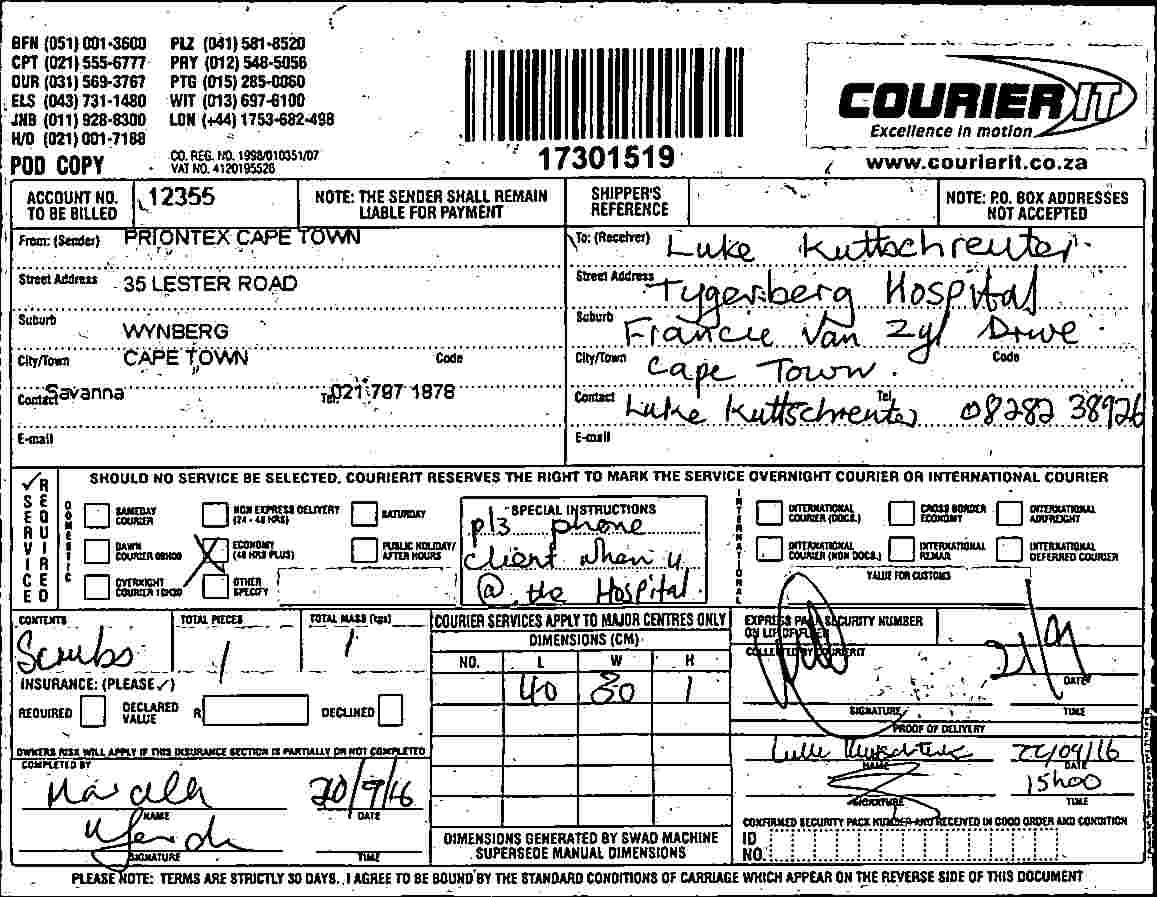 BFN (051) 001-3600 PLZ (041) 581-8520
CPT (021) 555-6777 PRY (012) 548-5056
DUR (031) 569-3767 PTG (015) 285-0060
ELS (043) 731-1480 WIT (013) 697-6100
JNB (011) 928-8300 LON (+44) 1753-682-498
H/O (021) 001-7188
POD COPY
CO. REG. NO. 1998/010351/07
VAT NO. 4120195526
17301519
COURIER IT
Excellence in motion
www.courierit.co.za
ACCOUNT NO. TO BE BILLED 12355
NOTE: THE SENDER SHALL REMAIN LIABLE FOR PAYMENT
SHIPPER'S REFERENCE
NOTE: P.O. BOX ADDRESSES NOT ACCEPTED
From: (Sender) PRIONTEX CAPE TOWN
Street Address 35 LESTER ROAD
Suburb WYNBERG
City/Town CAPE TOWN Code
Contact Savanna Tel 021 797 1878
E-mail
To: (Receiver) Luke Kuttschreuter
Street Address Tygerberg Hospital
Suburb Francie Van Zyl Drive
City/Town Cape Town. Code
Contact Luke Kuttschreuter Tel 08282 38926
E-mail
✓ SERVICE REQUIRED
SHOULD NO SERVICE BE SELECTED, COURIERIT RESERVES THE RIGHT TO MARK THE SERVICE OVERNIGHT COURIER OR INTERNATIONAL COURIER
DOMESTIC
SAMEDAY COURIER
NON EXPRESS DELIVERY (24 - 48 HRS)
SATURDAY
DAWN COURIER 09H00
ECONOMY (48 HRS PLUS)
PUBLIC HOLIDAY/ AFTER HOURS
OVERNIGHT COURIER 10H30
OTHER SPECIFY
SPECIAL INSTRUCTIONS
plz phone
client when u
@ the Hospital
INTERNATIONAL
INTERNATIONAL COURIER (DOCS.)
CROSS BORDER ECONOMY
INTERNATIONAL AIRFREIGHT
INTERNATIONAL COURIER (NON DOCS.)
INTERNATIONAL REMAIL
INTERNATIONAL DEFERRED COURIER
VALUE FOR CUSTOMS
CONTENTS Scrubs
TOTAL PIECES 1
TOTAL MASS (kgs) 1
INSURANCE: (PLEASE ✓)
REQUIRED DECLARED VALUE R DECLINED
OWNERS RISK WILL APPLY IF THIS INSURANCE SECTION IS PARTIALLY OR NOT COMPLETED
COMPLETED BY
NAME
20/9/16
DATE
SIGNATURE TIME
COURIER SERVICES APPLY TO MAJOR CENTRES ONLY
DIMENSIONS (CM)
NO. L W H
40 30 1
DIMENSIONS GENERATED BY SWAD MACHINE SUPERSEDE MANUAL DIMENSIONS
EXPRESS PACK SECURITY NUMBER
COLLECTED BY COURIERIT
21/9
DATE
SIGNATURE TIME
PROOF OF DELIVERY
22/09/16
NAME DATE
15h00
SIGNATURE TIME
CONFIRMED SECURITY PACK NUMBER AND RECEIVED IN GOOD ORDER AND CONDITION
ID NO.
PLEASE NOTE: TERMS ARE STRICTLY 30 DAYS. I AGREE TO BE BOUND BY THE STANDARD CONDITIONS OF CARRIAGE WHICH APPEAR ON THE REVERSE SIDE OF THIS DOCUMENT